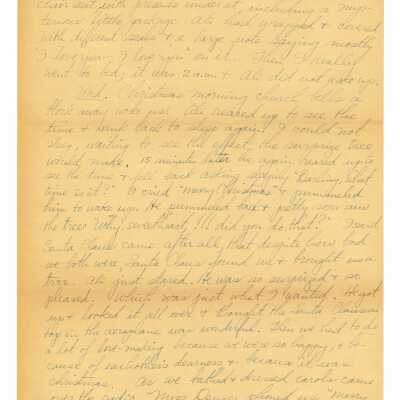 set with presents under it, including a mys-
terious little package Ali had wrapped & covered
with different seals & a large note saying mostly
"I love you, I love you" on it. Then I really
went to bed; it was 2 a.m. & Ali did not wake up.
Wed. Christmas morning church bells a
way woke us. Ali reared up to see the
time & went back to sleep again. I could not
sleep, waiting to see the effect, the surprise tree
would make. 15 minutes later he again reared up to
see the time & fell back asking sleepily "Darling, what
time is it?" I cried "Merry Christmas" & pummeled
him to wake up. He pummeled back & pretty soon saw
the tree "Why, sweetheart, !!! did you do that?" I said
Santa Claus came after all, that despite how bad
we both were, Santa Claus found us & brought us a
tree. Ali just stared. He was so surprized & so
pleased. Which was just what I wanted. He got
up & looked it all over & thought the Santa Claus on
top in the aeroplane was wonderful. Then we had to do
a lot of love-making because we were so happy, & be-
cause of each other's dearness & because it was
Christmas. As we bathed & dressed carols came
over the radio. "Miss" phoned us "Merry